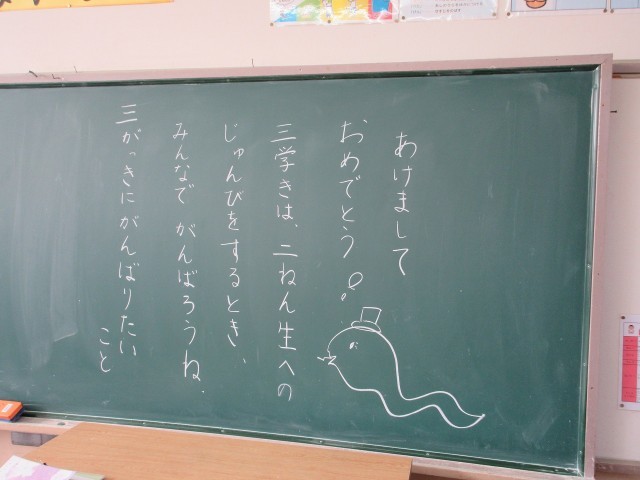 あけまして
おめでとう!
三学きは、二ねん生への
じゅんびをするとき、
みんなで がんばろうね.
三がっきにがんばりたい
こと